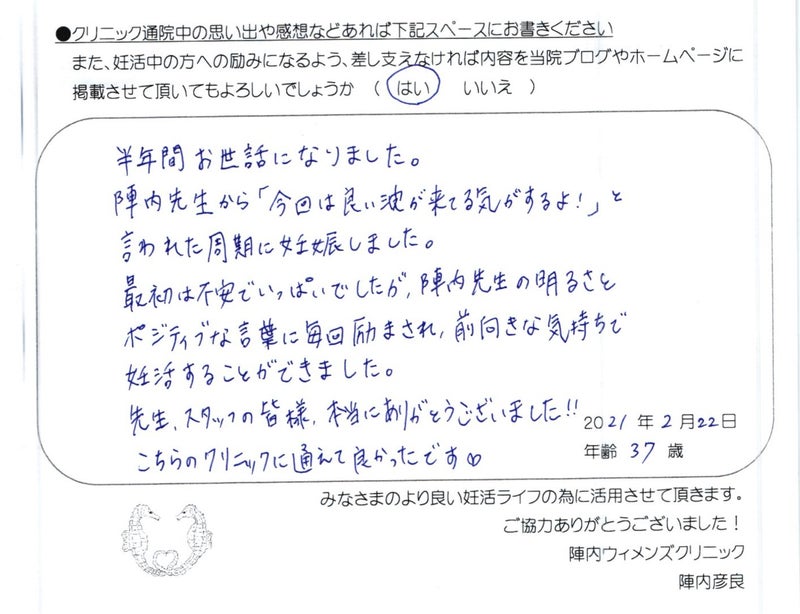 ●クリニック通院中の思い出や感想などあれば下記スペースにお書きください
また、妊活中の方への励みになるよう、差し支えなければ内容を当院ブログやホームページに
掲載させて頂いてもよろしいでしょうか （ はい　いいえ ）
半年間お世話になりました。
陣内先生から「今回は良い波が来てる気がするよ!」と
言われた周期に妊娠しました。
最初は不安でいっぱいでしたが、陣内先生の明るさと
ポジティブな言葉に毎回励まされ、前向きな気持ちで
妊活することができました。
先生、スタッフの皆様、本当にありがとうございました!!
こちらのクリニックに通えて良かったです♡
2021 年 2 月 22 日
年齢 37 歳
みなさまのより良い妊活ライフの為に活用させて頂きます。
ご協力ありがとうございました！
陣内ウィメンズクリニック
陣内彦良